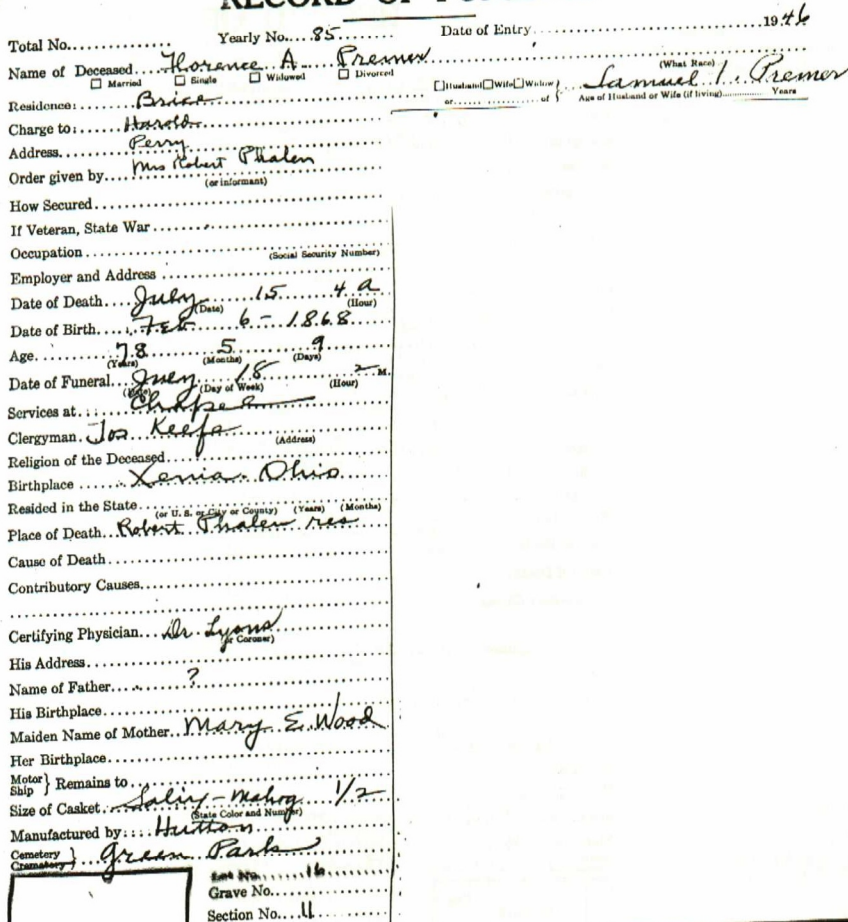 RECORD OF
Total No. Yearly No. 85 Date of Entry 1946
Name of Deceased Florence A. Premer (What Race)
☐ Married ☐ Single ☐ Widowed ☐ Divorced ☐ Husband ☐ Wife ☐ Widow or of } Samuel I. Premer
Residence: Brice Age of Husband or Wife (if living) Years
Charge to: Harold
Address Perry
Order given by Mrs Robert Phalen
(or informant)
How Secured
If Veteran, State War
Occupation (Social Security Number)
Employer and Address
Date of Death July 15 4 a
(Date) (Hour)
Date of Birth Feb 6 - 1868
Age 78 5 9
(Years) (Months) (Days)
Date of Funeral July 18 2 M.
(Date) (Day of Week) (Hour)
Services at Chapel
Clergyman Jos Keefe (Address)
Religion of the Deceased
Birthplace Xenia Ohio
Resided in the State (or U. S. or City or County) (Years) (Months)
Place of Death Robert Phalen res
Cause of Death
Contributory Causes
Certifying Physician Dr. Lyons
(or Coroner)
His Address
Name of Father ?
His Birthplace
Maiden Name of Mother Mary E. Wood
Her Birthplace
Motor Ship } Remains to
Size of Casket - Mahog 1/2
(State Color and Number)
Manufactured by Hutton
Cemetery Crematory } Green Park
Lot No. 16
Grave No.
Section No. 11